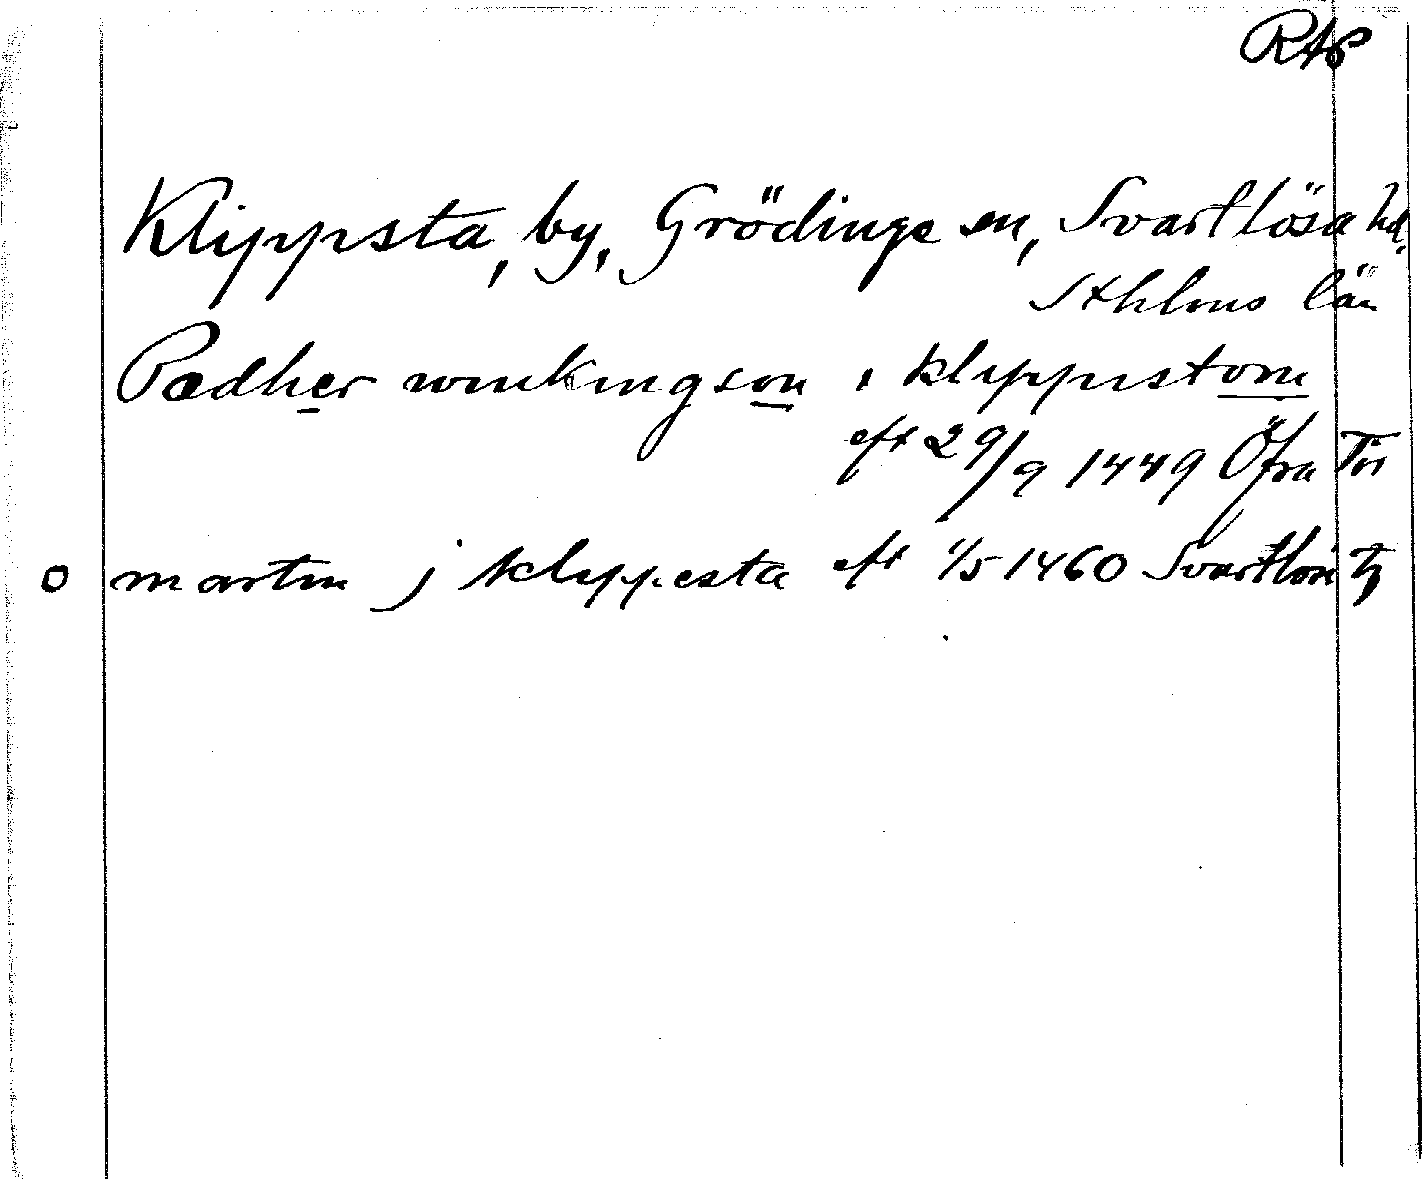 RAP
Klippsta, by, Grödinge sn, Svartlösa hd,
Sthlms län
Pædher winkingson i klippistom
eft 29/9 1449 Öfra Tör
o martin j klippesta eft 1/5 1460 Svartlösa tg